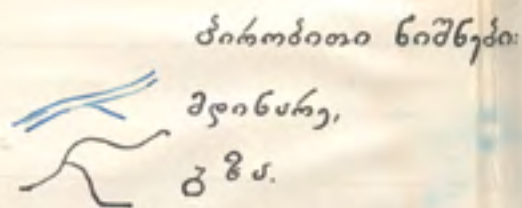 პირობითი ნიშნები:
მდინარე,
გზა.